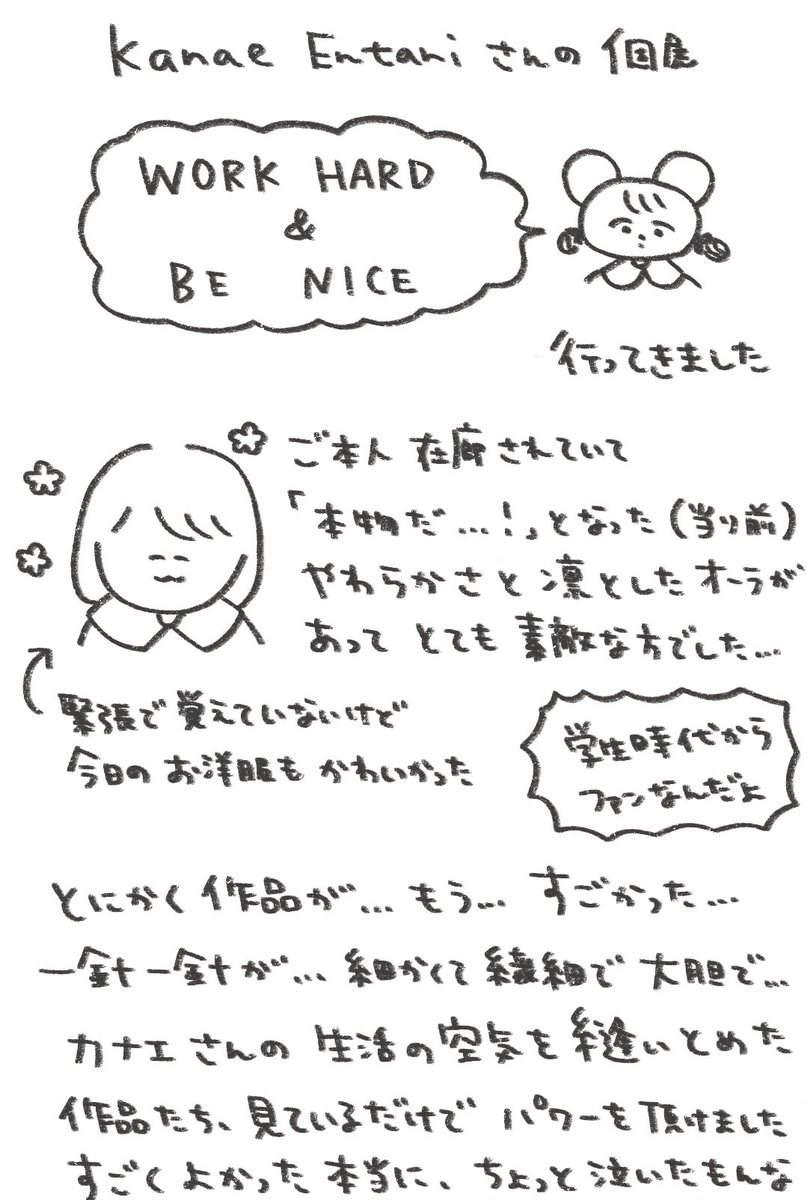 Kanae Entani さんの 個展
WORK HARD
&
BE NICE
行ってきました
ご本人 在廊されていて
「本物だ…!」となった(当り前)
やわらかさと 凛とした オーラが
あって とても 素敵な方でした…
緊張で 覚えていないけど
今日の お洋服も かわいかった
学生時代から
ファンなんだよ
とにかく 作品が… もう… すごかった…
一針一針が… 細かくて 繊細で 大胆で…
カナエさんの 生活の空気を 縫いとめた
作品たち、見ているだけで パワーを頂けました
すごく よかった 本当に、ちょっと泣いたもんな